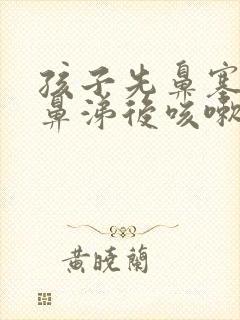 孩子先鼻塞
鼻涕後咳嗽
黄晓蘭